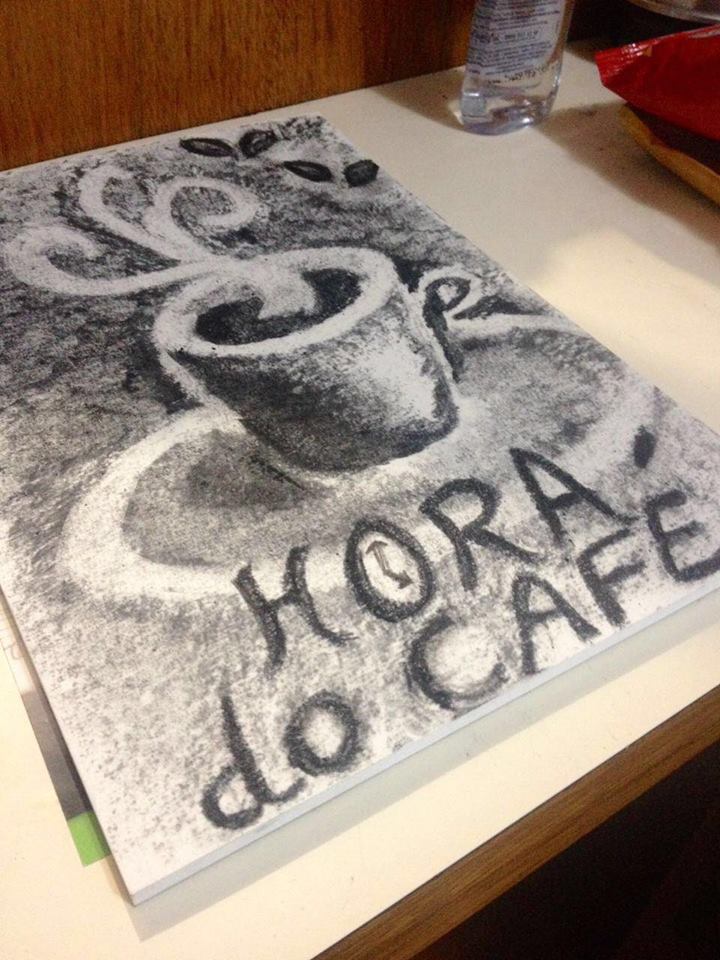 HORA
do CAFÉ